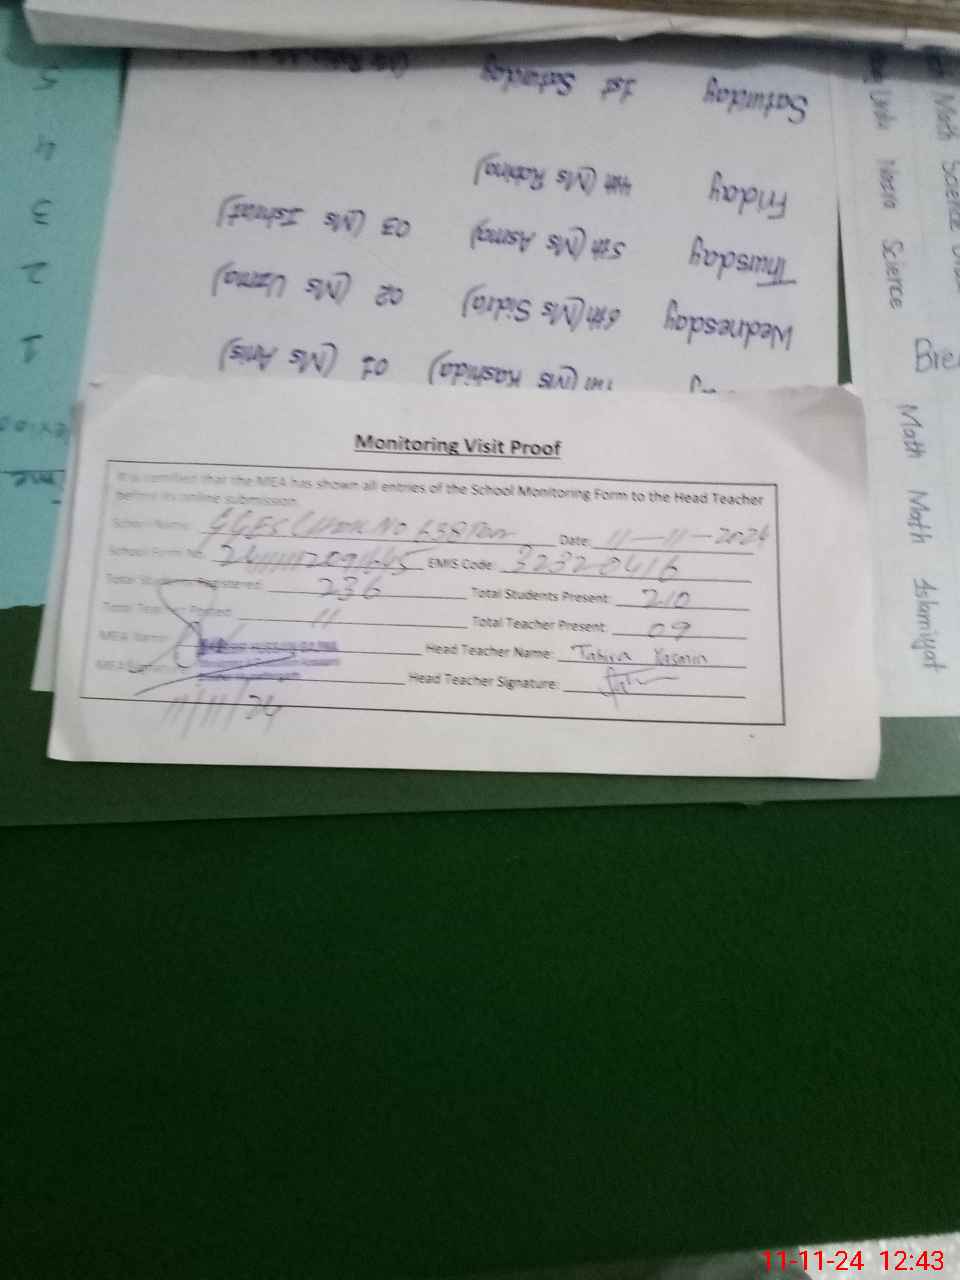 Saturday 1st Saturday
Friday 4th (Ms Robina)
Thursday 5th (Ms Asma) 03 (Ms Ishrat)
Wednesday 6th (Ms Sidra) 02 (Ms Uzma)
(Ms Rashida) 01 (Ms Anis)
5
4
3
2
1
Urdu Nazra Science
Math Science
Math Math Islamiyat
Monitoring Visit Proof
It is certified that the MEA has shown all entries of the School Monitoring Form to the Head Teacher
before its online submission.
School Name: GGES Chak No 638 Date: 11-11-2024
School Form No. EMIS Code: 32320416
Total Students Registered: 236 Total Students Present: 210
Total Teacher Posted: 11 Total Teacher Present: 09
MEA Name: Head Teacher Name: Tahira Yasmin
MEA Head Teacher Signature:
11/11/24
11-11-24 12:43